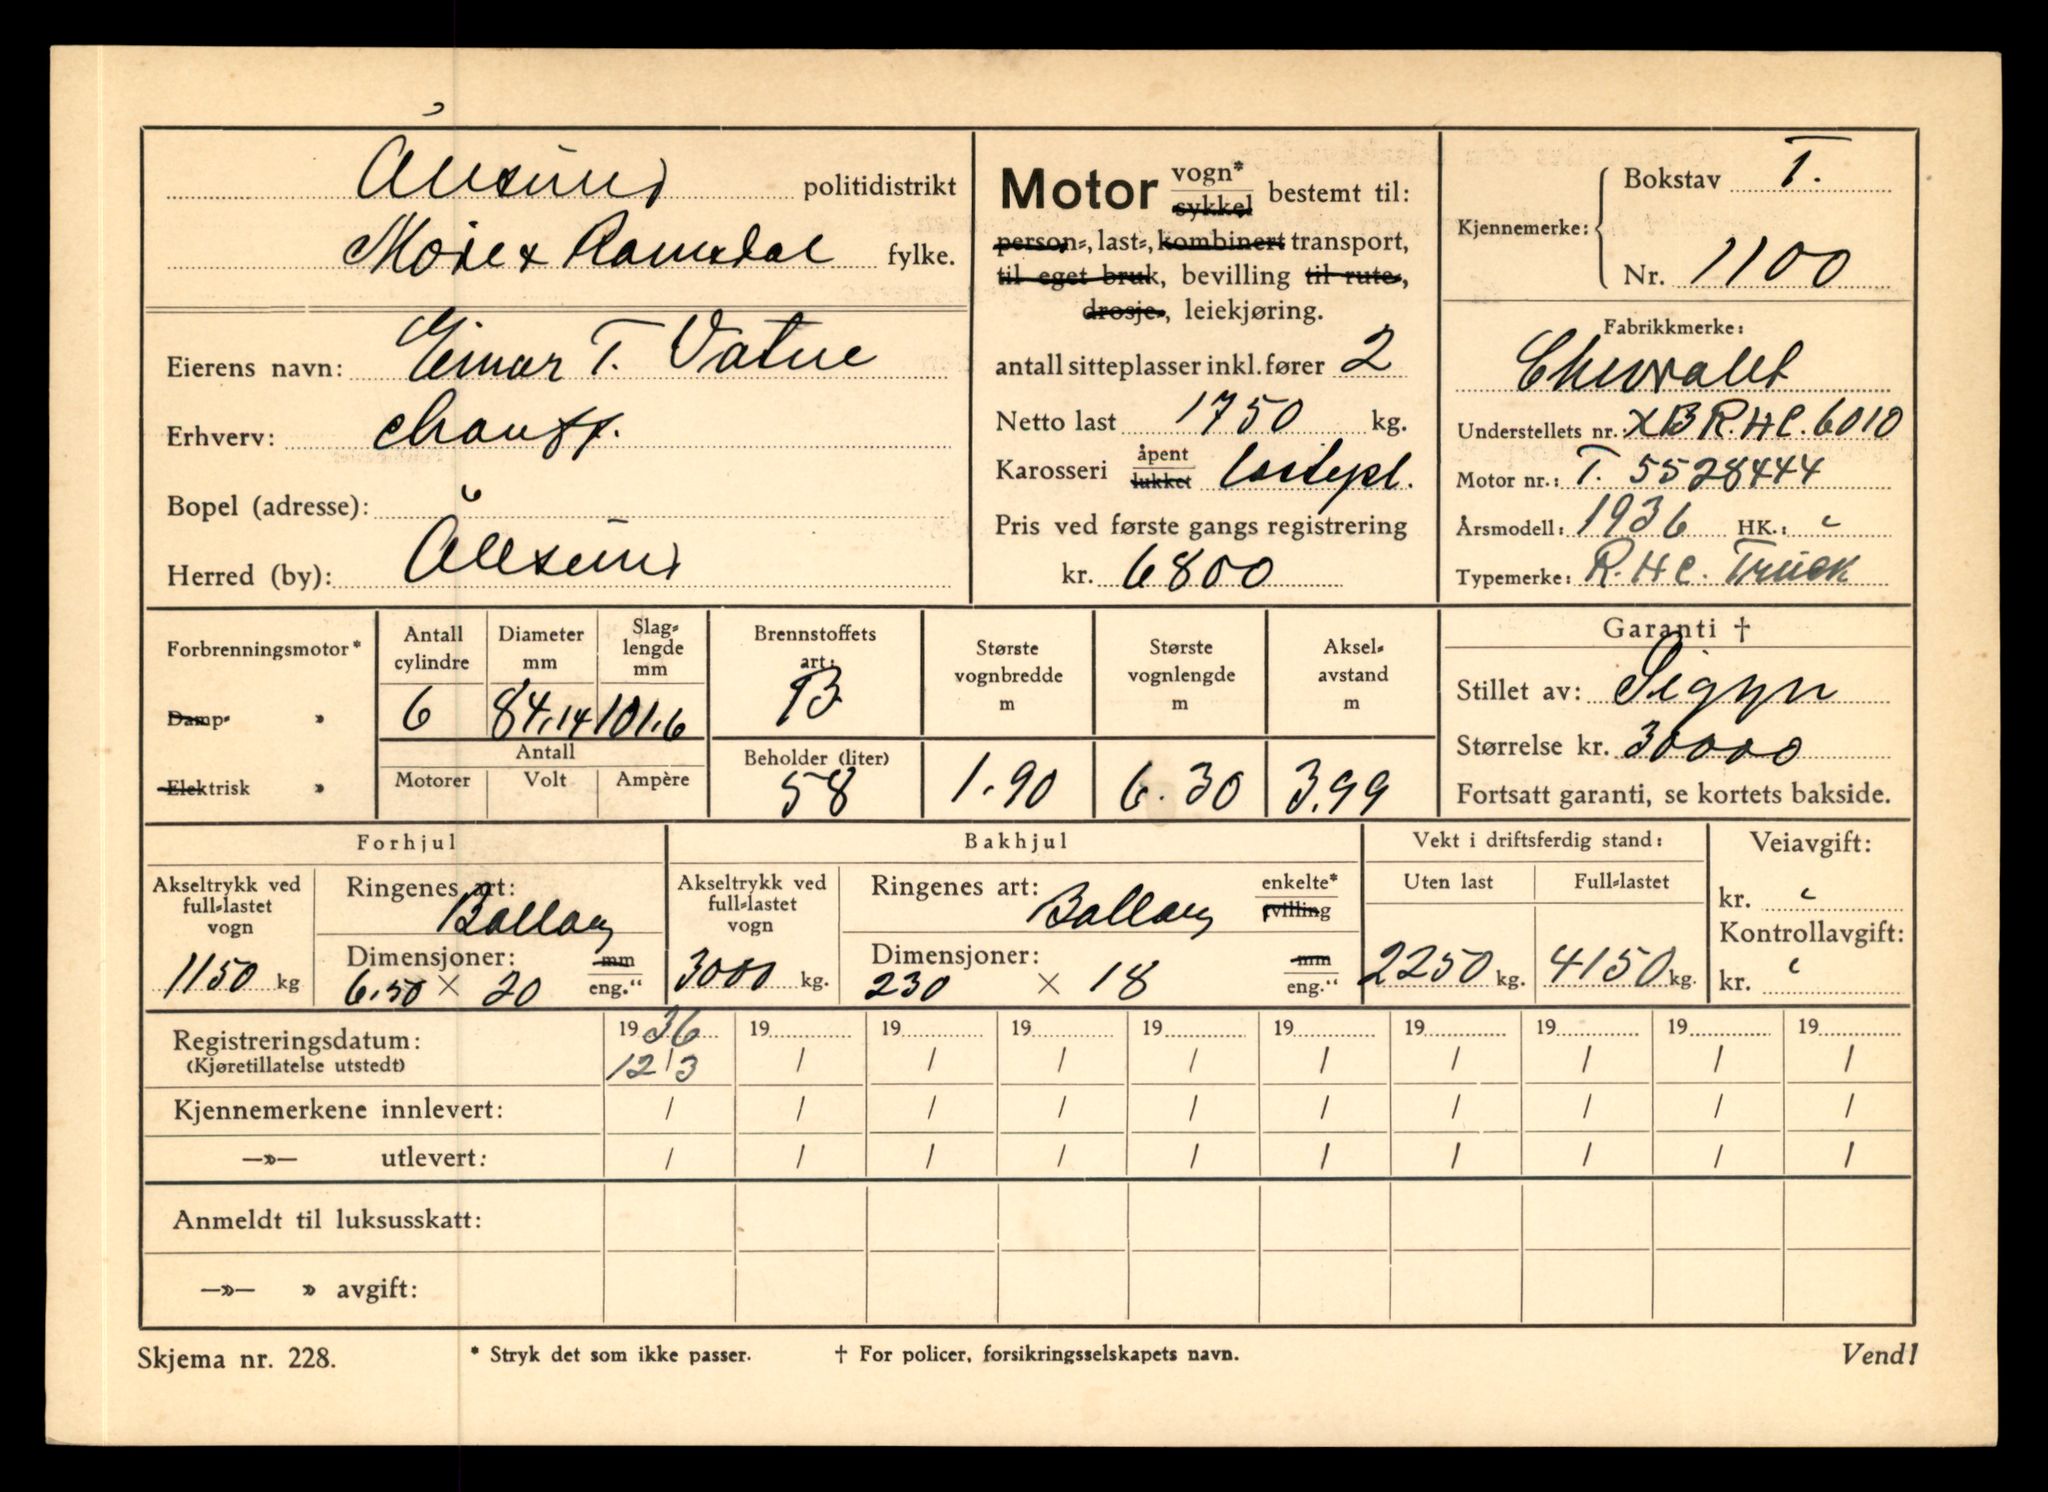 Ålesund politidistrikt
Møre & Romsdal fylke.
Eierens navn: Einar T. Vatne
Erhverv: chauff.
Bopel (adresse): "
Herred (by): Ålesund
Motor vogn* sykkel bestemt til:
person-, last-, kombinert transport,
til eget bruk, bevilling til rute-,
drosje-, leiekjøring.
antall sitteplasser inkl. fører 2
Netto last 1750 kg.
Karosseri åpent lukket lastepl.
Pris ved første gangs registrering
kr. 6800
Kjennemerke: Bokstav T.
Nr. 1100
Fabrikkmerke:
Chevrolet
Understellets nr. XBR.HC.6010
Motor nr.: T. 5528444
Årsmodell: 1936 HK.: "
Typemerke: R.H.C. Truck
Forbrenningsmotor*
Damp- »
Elektrisk »
Antall cylindre 6
Diameter mm 84,14
Slag-lengde mm 101,6
Antall
Motorer Volt Ampère
Brennstoffets art: B
Beholder (liter) 58
Største vognbredde m 1.90
Største vognlengde m 6.30
Aksel-avstand m 3,99
Garanti †
Stillet av: Sigyn
Størrelse kr. 30000
Fortsatt garanti, se kortets bakside.
Forhjul
Akseltrykk ved full-lastet vogn 1150 kg
Ringenes art: Ballong
Dimensjoner: mm eng."
6.50 × 20
Bakhjul
Akseltrykk ved full-lastet vogn 3000 kg.
Ringenes art: Ballong enkelte* tvilling
Dimensjoner: mm eng."
230 × 18
Vekt i driftsferdig stand:
Uten last Full-lastet
2250 kg. 4150 kg.
Veiavgift:
kr. "
Kontrollavgift:
kr. "
Registreringsdatum: 1936 19 19 19 19 19 19 19 19 19
(Kjøretillatelse utstedt) 12/3 / / / / / / / / /
Kjennemerkene innlevert: / / / / / / / / / /
—»— utlevert: / / / / / / / / / /
Anmeldt til luksusskatt:
—»— » avgift:
Skjema nr. 228. * Stryk det som ikke passer. † For policer, forsikringsselskapets navn. Vend!